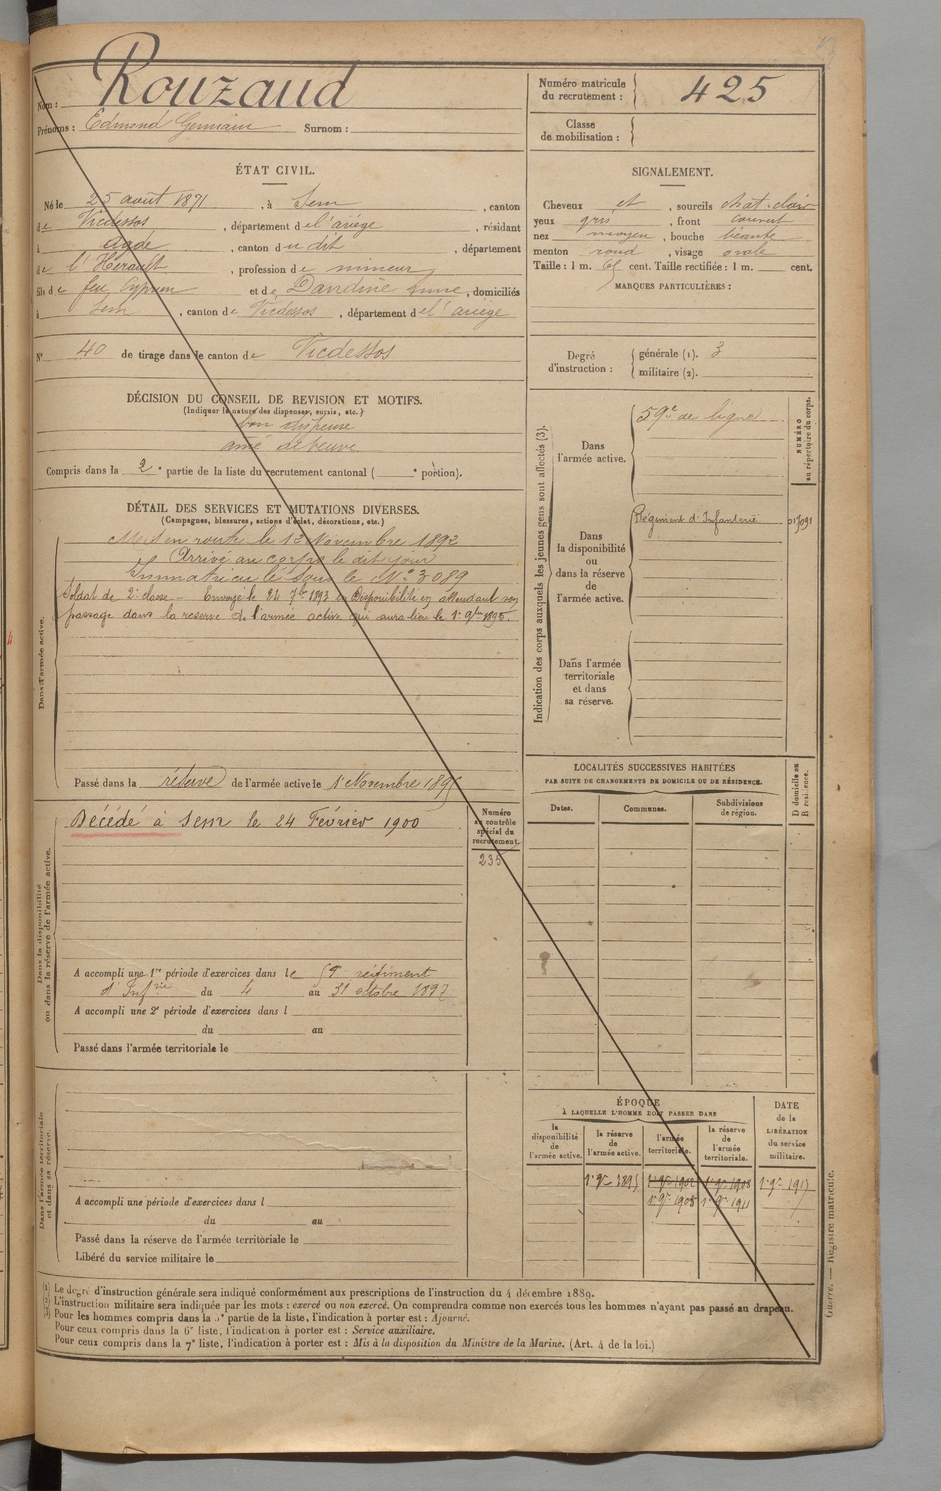 Nom : Rouzaud
Prénoms : Edmond Germain Surnom :
Numéro matricule du recrutement : 425
Classe de mobilisation :
ÉTAT CIVIL.
Né le 25 août 1871, à Sem, canton
de Vicdessos, département de l'ariége, résidant
à Agde, canton du dit, département
de l'Hérault, profession de mineur
fils de feu Cyprien et de Dandine Anne, domiciliés
à Sem, canton de Vicdessos, département de l'ariége
N° 40 de tirage dans le canton de Vicdessos
SIGNALEMENT.
Cheveux et, sourcils chat-clair
yeux gris, front couvert
nez moyen, bouche béante
menton rond, visage ovale
Taille : 1 m. 65 cent. Taille rectifiée : 1 m. cent.
MARQUES PARTICULIÈRES :
Degré d'instruction :
générale (1). 3
militaire (2).
DÉCISION DU CONSEIL DE REVISION ET MOTIFS.
(Indiquer la nature des dispenses, sursis, etc.)
bon dispense
ainé de veuve
Compris dans la 2e partie de la liste du recrutement cantonal ( e portion).
DÉTAIL DES SERVICES ET MUTATIONS DIVERSES.
(Campagnes, blessures, actions d'éclat, décorations, etc.)
Dans l'armée active.
Mis en route le 13 Novembre 1892
Arrivé au corps le dit jour
Immatriculé sous le N° 3089
Soldat de 2e classe – Envoyé le 24 7bre 1893 en Disponibilité en attendant son
passage dans la réserve de l'armée active qui aura lieu le 1er 9bre 1895.
Passé dans la réserve de l'armée active le 1er Novembre 1895
Indication des corps auxquels les jeunes gens sont affectés (3).
NUMÉRO au répertoire du corps.
Dans l'armée active.
59e de ligne
Dans la disponibilité ou dans la réserve de l'armée active.
Régiment d'Infanterie
Dans l'armée territoriale et dans sa réserve.
Dans la disponibilité ou dans la réserve de l'armée active.
Décédé à Sem le 24 Février 1900
Numéro au contrôle spécial du recrutement.
235
A accompli une 1re période d'exercices dans le 59e régiment
d'Infrie du 4 au 31 octobre 1897
A accompli une 2e période d'exercices dans l
du au
Passé dans l'armée territoriale le
LOCALITÉS SUCCESSIVES HABITÉES
PAR SUITE DE CHANGEMENTS DE DOMICILE OU DE RÉSIDENCE.
Dates. Communes. Subdivisions de région. D domicile ou R résidence.
Dans l'armée territoriale et dans sa réserve.
A accompli une période d'exercices dans l
du au
Passé dans la réserve de l'armée territoriale le
Libéré du service militaire le
ÉPOQUE
À LAQUELLE L'HOMME DOIT PASSER DANS
la disponibilité de l'armée active. la réserve de l'armée active. l'armée territoriale. la réserve de l'armée territoriale.
DATE de la LIBÉRATION du service militaire.
1er 9bre 1895 1er 9bre 1902 1er 9bre 1908 1er 9bre 1917
1er 9bre 1905 1er 9bre 1911
(1) Le degré d'instruction générale sera indiqué conformément aux prescriptions de l'instruction du 4 décembre 1889.
(2) L'instruction militaire sera indiquée par les mots : exercé ou non exercé. On comprendra comme non exercés tous les hommes n'ayant pas passé au drapeau.
(3) Pour les hommes compris dans la 5e partie de la liste, l'indication à porter est : Ajourné.
Pour ceux compris dans la 6e liste, l'indication à porter est : Service auxiliaire.
Pour ceux compris dans la 7e liste, l'indication à porter est : Mis à la disposition du Ministre de la Marine. (Art. 4 de la loi.)
Guerre. — Registre matricule.